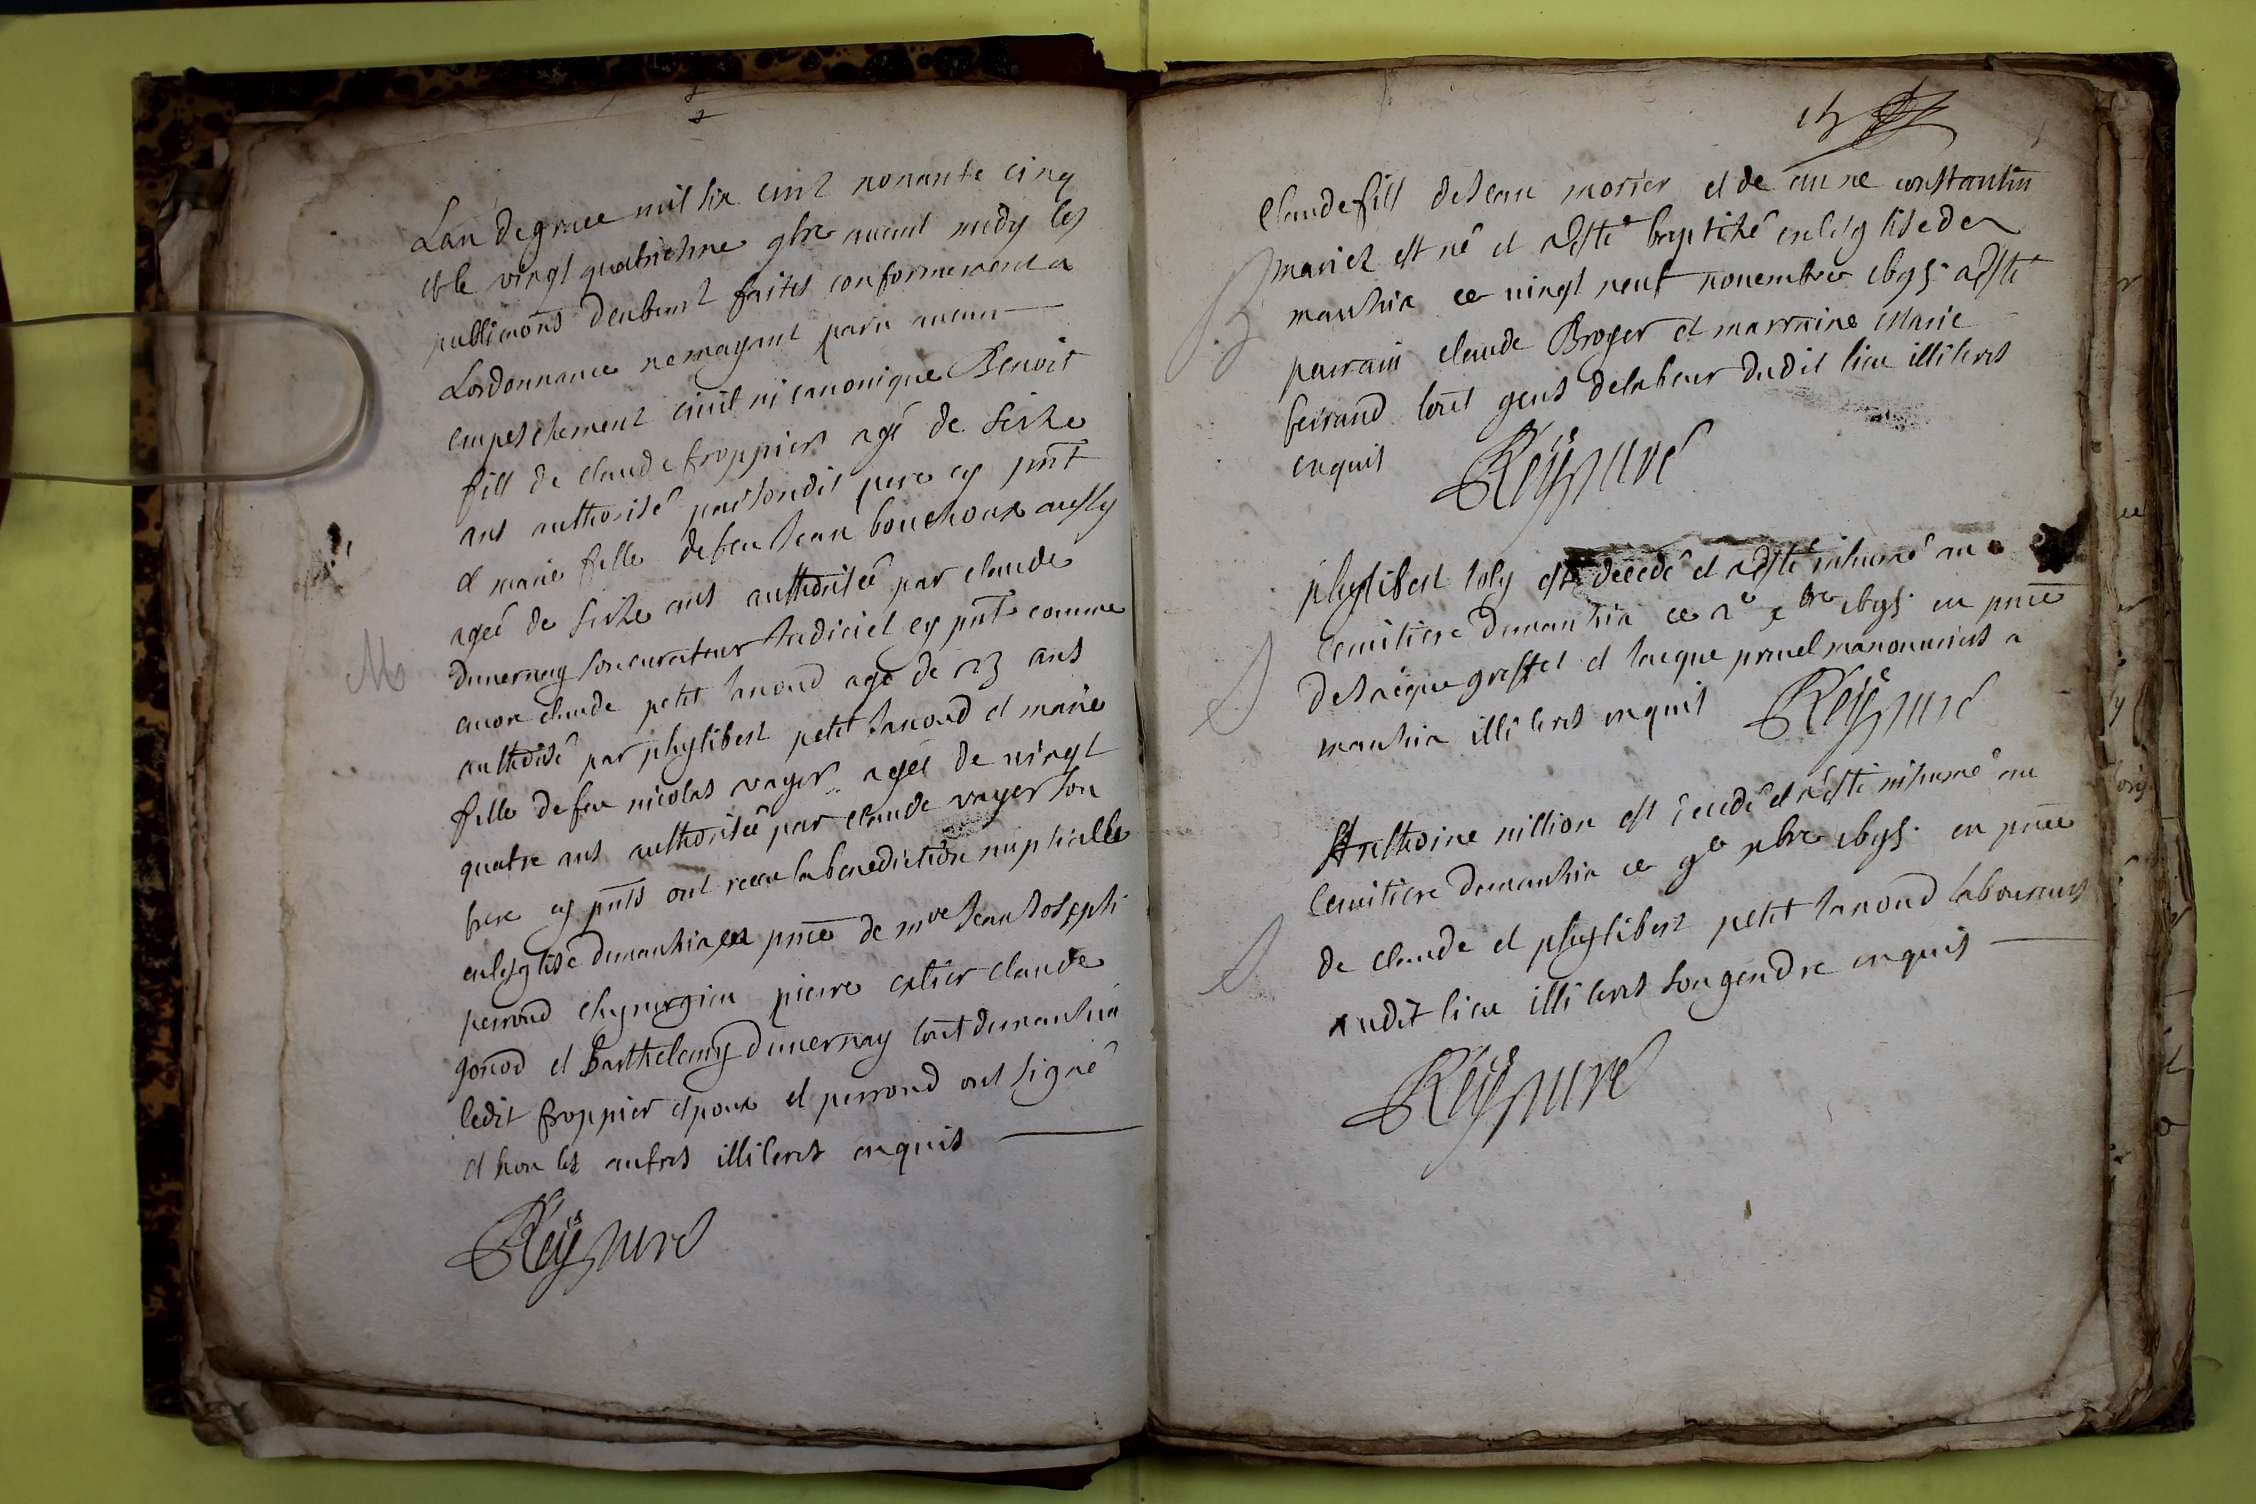 Lan de grace mil six cent nonante cinq
et le vingt quatriesme 9bre avant midy les
publications deubment faites conformement a
Lordonnance nemayant paru aucun
empeschement civil ni canonique Benoit
fill de claude froppier agé de seize
ans authorisé par sondit pere cy pnt
et marie fille de feu Jean bouchoux aussy
ageé de seize ans authoriseé par claude
duvernay son curateur Judiciel cy pnt comme
encor claude petit Janond agé de 23 ans
authorisé par phylibert petit Janond et marie
fille de feu nicolas vayer ageé de vingt
quatre ans authoriseé par claude vayer son
frere cy pnts ont receu la benediction nuptialle
en lesglise dumanzia en pnce de mre Jean Joseph
perrond chyrurgien pierre claude
gonod et Barthelemy duvernay tout dumanzia
ledit froppier epoux et perrond ont signé
et non les autres illiteres enquis
M
15
Claude fill de Jean morier et de anne constantin
mariez est né et a esté baptizé en lesglise de
manzia ce vingt neuf novembre 1695 a esté
parrain claude Broyer et marraine Marie
ferrand tout gens de labeur dudit lieu illiteres
enquis
B
phylibert est decedé et a esté inhumé au
cemitiere dumanzia ce 2e xbre 1695 en pnce
de Jacque greffet et Jacque manouvriers a
manzia illiteres enquis
Anthoine million est decedé et a esté inhumé au
cemitiere dumanzia ce 9e xbre 1695 en pnce
de claude et phylibert petit Janond laboureurs
audit lieu illiteres son gendre enquis